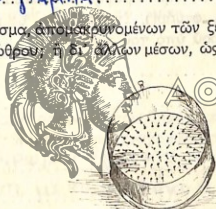 σμα, ἀπομακρυνομένων τῶν ξε
ρθρου; ἢ δι᾽ ἄλλων μέσων, ὡς
ΑΘ